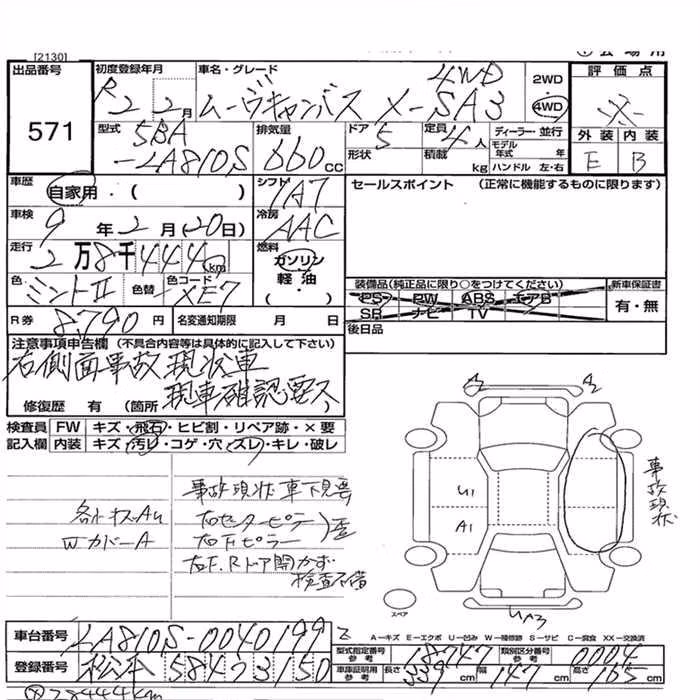 [2130]
出品番号
571
初度登録年月
R 2 2月
車名・グレード
4WD
ムーヴキャンバス X-SA3
2WD
4WD
評価点
外装 内装
E B
型式
5BA
-LA810S
排気量
660cc
ドア 5
形状
定員 4人
積載 kg
ディーラー・並行
モデル年式 年
ハンドル 左・右
車歴
自家用・( )
シフト
IA7
車検
9年2月(20日)
冷房
AAC
走行
2万8千444km
燃料
ガソリン
軽油
・( )
色
ミントII
色替
色コード
XE7
R券 8,790円
名変通知期限 月 日
セールスポイント (正常に機能するものに限ります)
装備品(純正品に限り○をつけてください)
PS PW ABS エアB
SR ナビ TV
新車保証書
有・無
後日品
注意事項申告欄 (不具合内容等は具体的に記入して下さい)
右側面事故現状車
現車確認要ス
修復歴 有 (箇所
検査員記入欄
FW キズ・飛石・ヒビ割・リペア跡・×要
内装 キズ・汚レ・コゲ・穴・スレ・キレ・破レ
事故現状車下見要
右センターピラー
右Fピラー
歪
右F.Rドア開かず
検査不備
Wカバー A
U1
A1
事故現状
スペア
UA3
A-キズ E-エクボ U-凹み W-補修跡 S-サビ C-腐食 XX-交換済
車台番号 LA810S-0040199
登録番号 松本 584 ろ 3150
型式指定番号 参考 18747
類別区分番号 参考 0004
車庫証明用 参考
長さ 339cm
幅 147cm
高さ 165cm
28444km